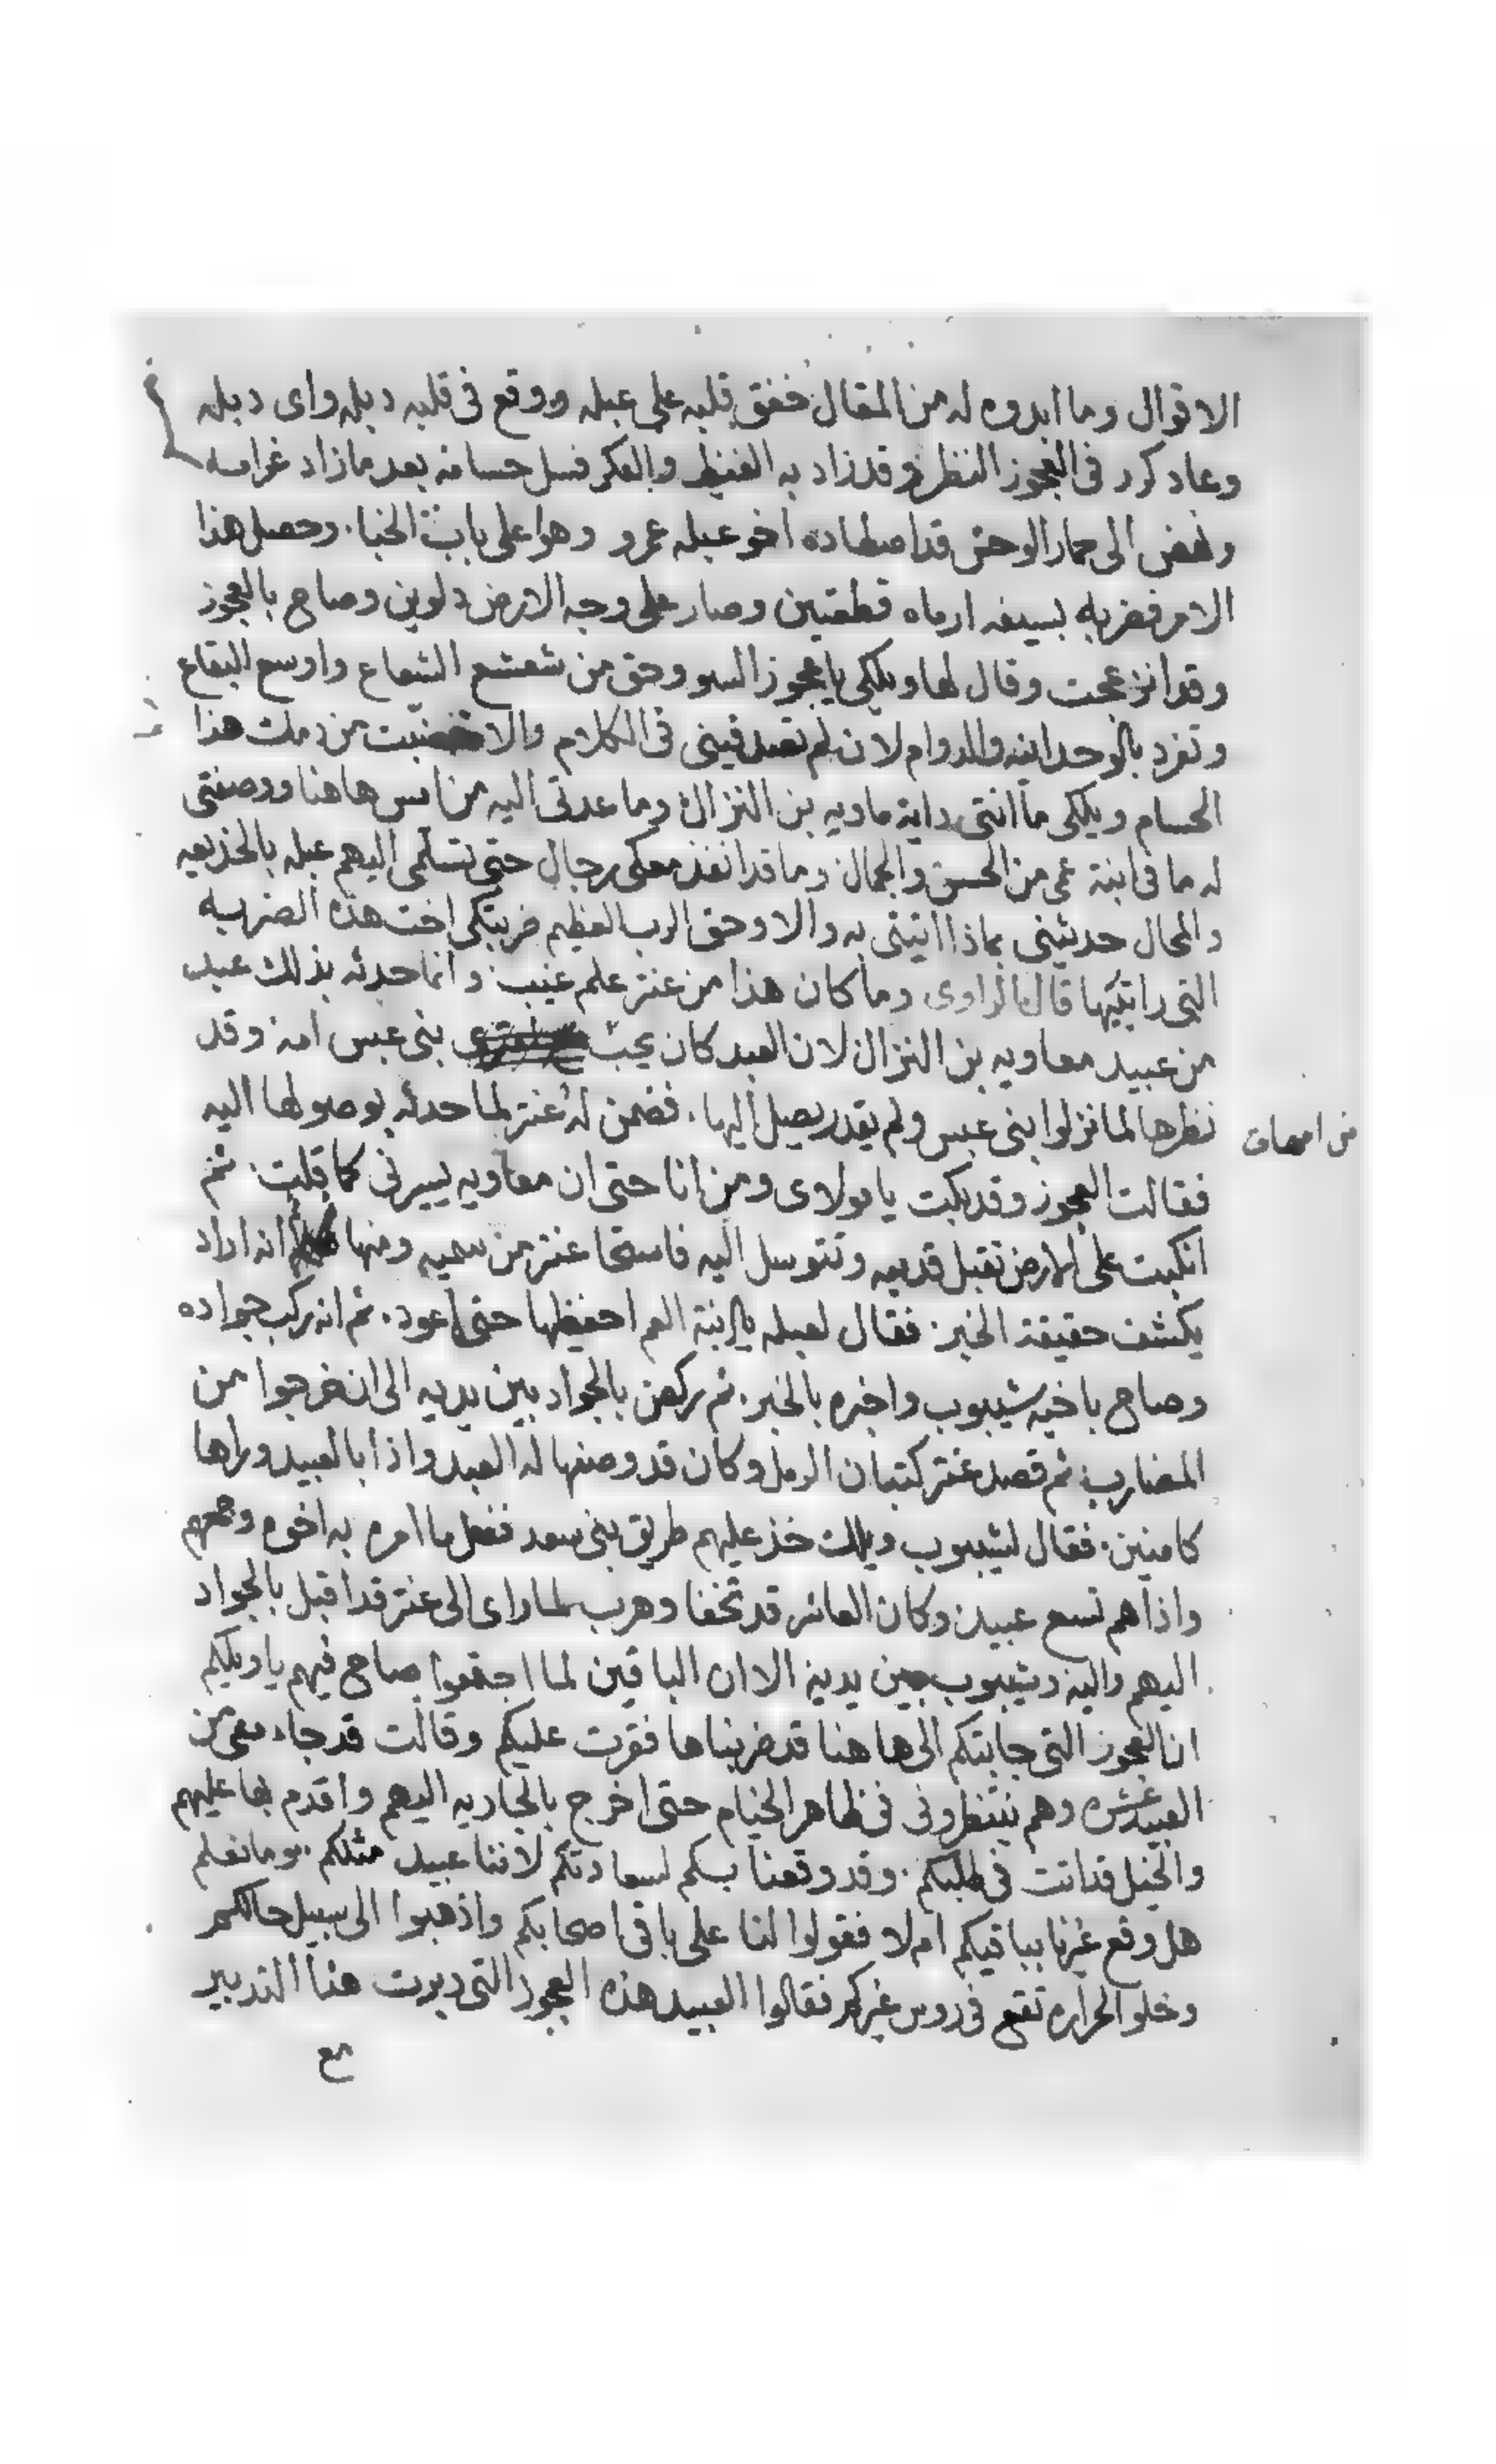 الاقوال وما ابدوه له من المقال خفق قلبه على عبله ووقع فى قلبه دبله واى دبله
وعاد كرر فى العجوز النظر وقد زاد به الغيظ والفكر فسل حسامه بعد مازاد غرامه
ونهض الى حمار الوحش قد اصطاده اخو عبله عمرو وهوا على باب الخبا. وحصل هذا
الامر فضربه بسيفه ارماه قطعتين وصار على وجه الارض دلوين وصاح بالعجوز
وقد انزعجت وقال لها ويلكى يا عجوز السو وحق من شعشع الشعاع واوسع البقاع
وتفرد بالوحدانيه والدوام لان لم تصدقينى فى الكلام والا خضبت من دمك هذا
الحسام ويلكى ما انتى داية معاويه بن النزال وما عدتى اليه من امس هاهنا ووصفتى
له ما فى ابنة عمى من الحسن والجمال وما قد انفذ معكى رجال حتى تسلمى اليهم عبله بالخديعه
والمحال حدثينى بماذا اتيتى به والا وحق الرب العظيم ضربتكى اخت هذه الضربه
التى رايتيها قال الراوى وما كان هذا من عنتر علم غيب وانما حدثه بذلك عبد
من عبيد معاويه بن النزال لان العبد كان يحب بنى عبس امه وقد
من امهات
نظرها لما نزلوا بنى عبس ولم يقدر يصل اليها. فضمن له عنتر لما حدثه بوصولها اليه
فقالت العجوز وقد بكت يا مولاى ومن انا حتى ان معاويه يسيرنى كما قلت. ثم
انكبت على الارض تقبل قدميه وتتوسل اليه فاستحا عنتر من ومنها انه اراد
يكشف حقيقة الخبر. فقال لعبله يا ابنة العم احفيظها حتى اعود. ثم انه ركب جواده
وصاح باخيه شيبوب واخبره بالخبر. ثم ركض بالجواد بين يديه الى ان خرجوا من
المضارب ثم قصد عنتر كتبان الرمل وكان قد وصفها له العبد واذا بالعبيد وراها
كامنين. فقال لشيبوب ويلك خذ عليهم طريق بنى سعد ففعل ما امره به اخوه وجمعهم
واذا هم تسع عبيد وكان العاشر قد تخفا وهرب لما راى الى عنتر قد اقبل بالجواد
اليهم واليه وشيبوب بين يديه الا ان الباقين لما اجتمعوا صاح فيهم يا ويلكم
ان العجوز التى جابتكم الى هاهنا قد ضربناها فقرت عليكم وقالت قد جاء معى من
العبيد عشره وهم ينتظرونى فى ظاهر الخيام حتى اخرج بالجاريه اليهم واقدم بها عليهم
والخيل قد اتت فى طلبكم. وقد وقعنا بكم لسعادتكم لاننا عبيد مثلكم. وما نعلم
هل وقع غيرنا بباقيكم ام لا فقولوا لنا على باقى اصحابكم واذهبوا الى سبيل حالكم
وخلو الحراره تقع فى روس غيركم فقالوا العبيد هذه العجوز التى دبرت هذا التدبير
مع